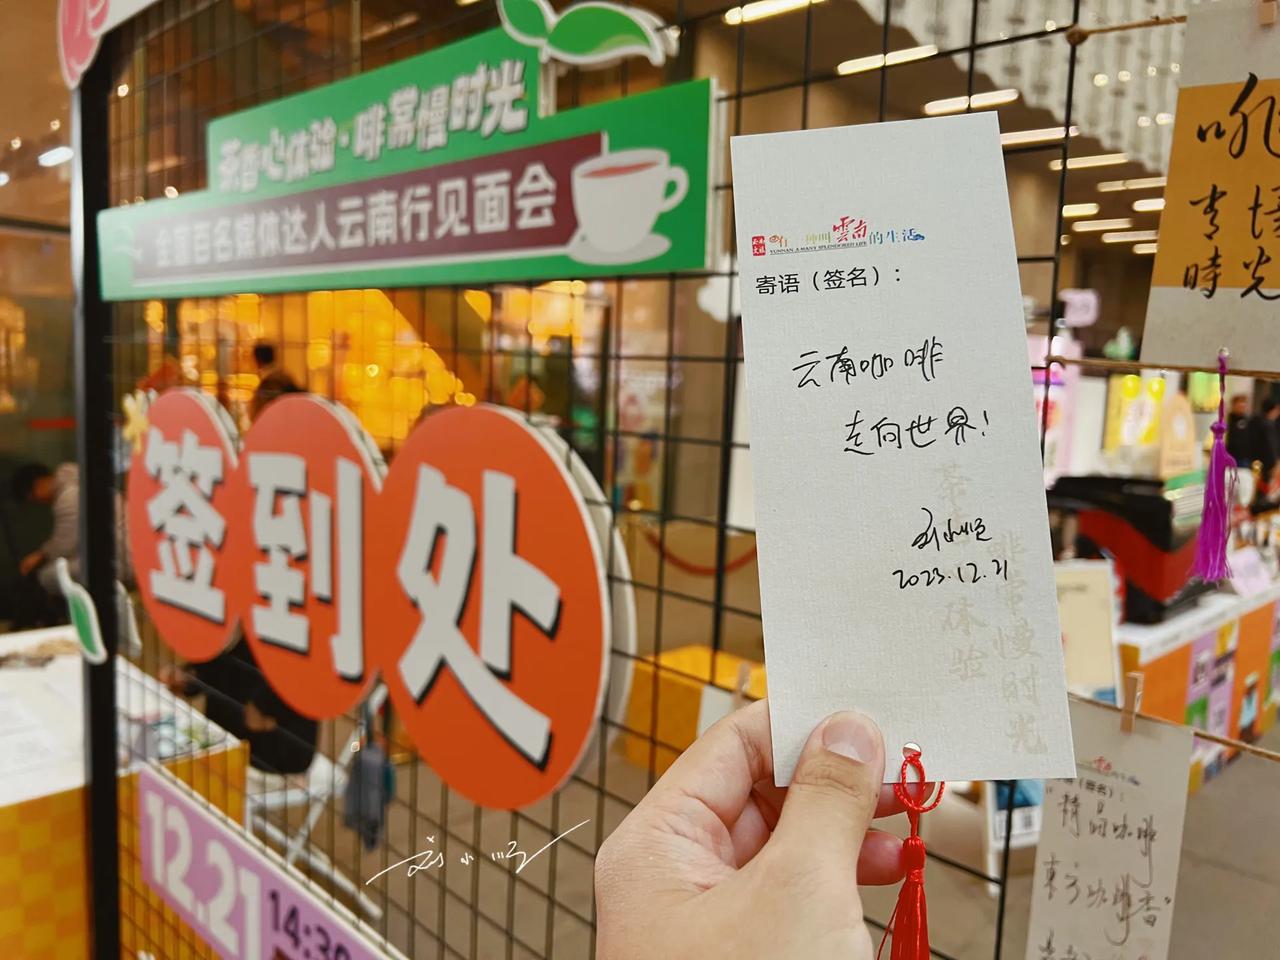 茶香心体验·啡常慢时光
全国百名媒体达人云南行见面会
签到处
12.21
14:30
有一种叫雲南的生活
YUNNAN, A MANY SPLENDORED LIFE
寄语（签名）：
云南咖啡
走向世界！
刘小顺
2023.12.21
茶香心体验
啡常慢时光
刘小顺
時光
（签名）：
精品咖啡